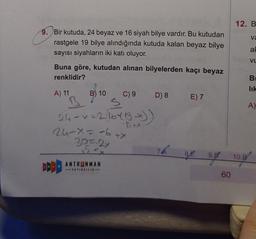 9. Bir kutuda, 24 beyaz ve 16 siyah bilye vardır. Bu kutudan
rastgele 19 bilye alındığında kutuda kalan beyaz bilye
sayısı siyahların iki katı oluyor.
Buna göre, kutudan alınan bilyelerden kaçı beyaz
renklidir?
A) 11 B) 10 C) 9 D) 8 E) 7
B S
24-x=2(
24-x=-6+x
30=2x
ANTRENMAN
YAYINCILIK
60
12. B
A)